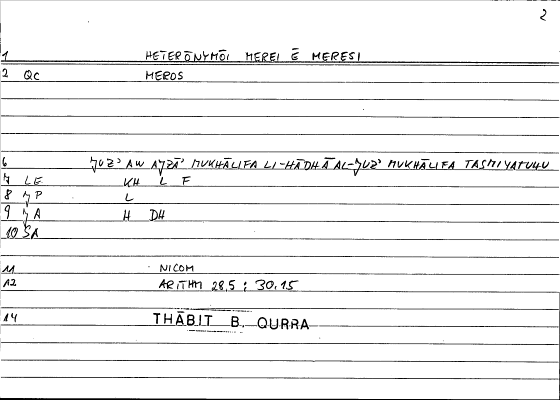 2
1 HETERŌNYMŌI MEREI Ē MERESI
2 QC MEROS
6 ǦUZʾ AW AǦZĀʾ MUKHĀLIFA LI-HĀDHĀ AL-ǦUZʾ MUKHĀLIFA TASMIYATUHU
7 LE KH L F
8 ǦP L
9 ǦA H DH
10 ŠA
11 NICOM
12 ARITHM 28,5 ; 30,15
14 THĀBIT B. QURRA